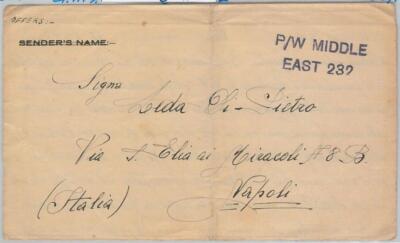 OFFERS:-
SENDER'S NAME:-
P/W MIDDLE
EAST 232
Sigra
Leda Di-Pietro
Via S. Elia ai Miracoli № 8. B.
Napoli
(Italia)